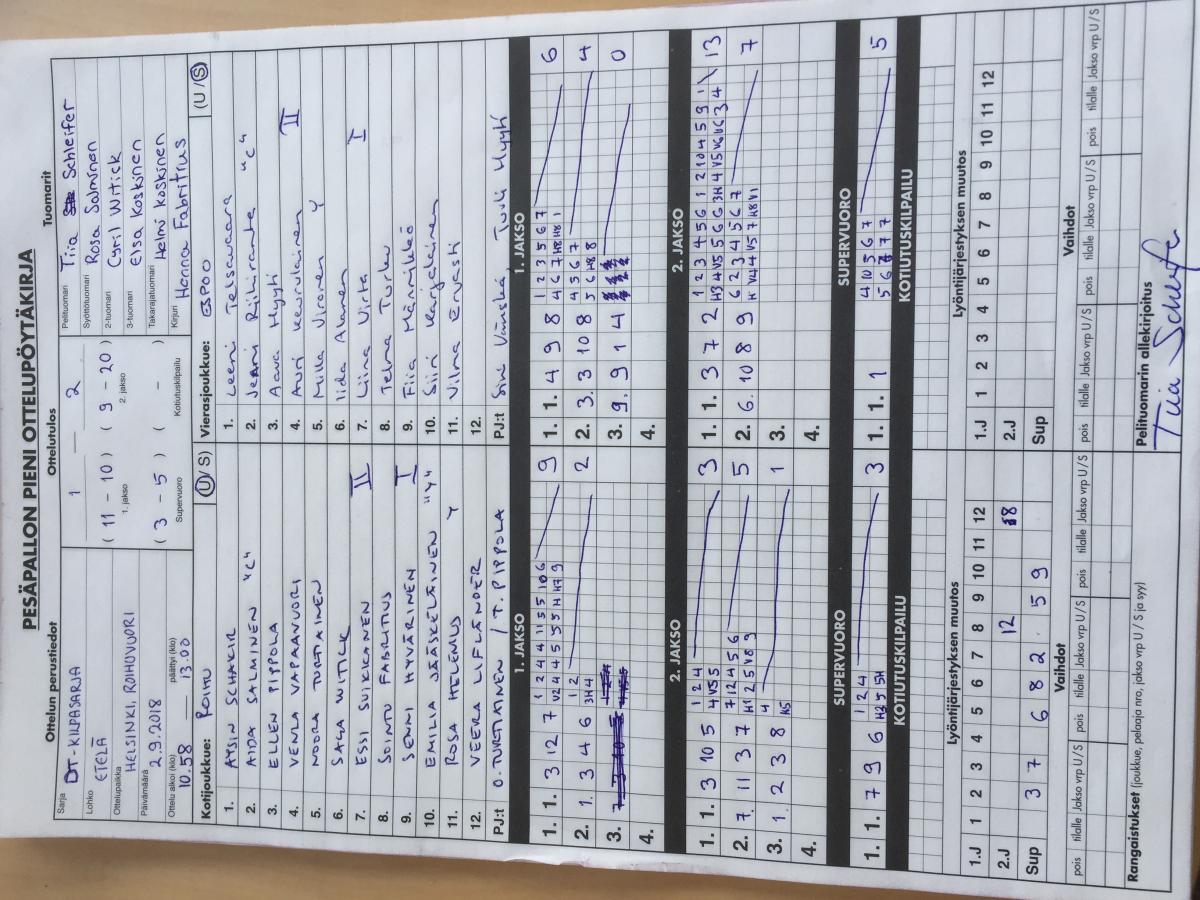 PESÄPALLON PIENI OTTELUPÖYTÄKIRJA
Ottelun perustiedot
Sarja DT-KILPASARJA
Lohko ETELÄ
Ottelupaikka HELSINKI, ROIHUVUORI
Päivämäärä 2.9.2018
Ottelu alkoi (klo) 10.58 päättyi (klo) 13.00
Ottelutulos
1 – 2
( 11 – 10 ) ( 9 – 20 )
1. jakso 2. jakso
( 3 – 5 ) ( – )
Supervuoro Kotiutuskilpailu
Tuomarit
Pelituomari Tiia Schleifer
Syöttötuomari Rosa Salminen
2-tuomari Cyril Witick
3-tuomari Elsa Koskinen
Takarajatuomari Helmi Koskinen
Kirjuri Hanna Fabritius
Kotijoukkue: ROIHU (U/S)
1. AYSIN SCHAKIR
2. AIDA SALMINEN "C"
3. ELLEN PIPPOLA
4. VENLA VAPAAVUORI
5. NOORA TURTIAINEN
6. SAGA WITICK
7. ESSI SUIKKANEN II
8. SOINTU FABRITIUS
9. SENNI HYVÄRINEN I
10. EMILIA JÄÄSKELÄINEN "Y"
11. ROSA HELENIUS Y
12. VEERA LIFLÄNDER
PJ:t O. TURTIAINEN / T. PIPPOLA
Vierasjoukkue: ESPOO (U/S)
1. Leeni Telsavaara
2. Jenni Riihiranta "C"
3. Aava Hyyti
4. Auri Keurulainen II
5. Milka Vironen Y
6. Iida Alanen
7. Liina Virta I
8. Telma Turku
9. Fiia Männikkö
10. Siiri Karjalainen
11. Vilma Ervasti
12.
PJ:t Sini Vänskä, Tuuli Hyyti
1. JAKSO
1. 1. 3 12 7 9
2. 1. 3 4 6 2
3.
4.
1. JAKSO
1. 1. 4 9 8 1 2 3 5 6 7 6
2. 3. 3 10 8 4 5 6 7 4
3. 9. 9 1 4 0
4.
2. JAKSO
1. 1. 3 10 5 1 2 4 3
2. 7. 11 3 7 5
3. 1. 2 3 8 1
4.
2. JAKSO
1. 1. 3 7 2 13
2. 6. 10 8 9 6 2 3 4 5 6 7 7
3.
4.
SUPERVUORO
1. 1. 7 9 6 1 2 4 3
SUPERVUORO
1. 1. 1 4 10 5 6 7 5
KOTIUTUSKILPAILU
KOTIUTUSKILPAILU
Lyöntijärjestyksen muutos
1.J 1 2 3 4 5 6 7 8 9 10 11 12
2.J 12 8
Sup 3 7 6 8 2 5 9
Lyöntijärjestyksen muutos
1.J 1 2 3 4 5 6 7 8 9 10 11 12
2.J
Sup
Vaihdot
pois tilalle Jakso vrp U/S pois tilalle Jakso vrp U/S pois tilalle Jakso vrp U/S
Vaihdot
pois tilalle Jakso vrp U/S pois tilalle Jakso vrp U/S pois tilalle Jakso vrp U/S
Rangaistukset (joukkue, pelaaja nro, jakso vrp U/S ja syy)
Pelituomarin allekirjoitus